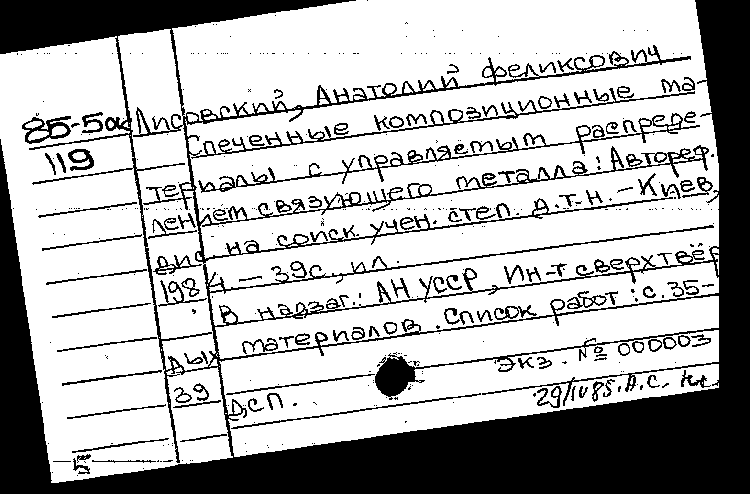 85-5ас Лисовский, Анатолий Феликсович
119 Спеченные композиционные ма-
териалы с управляемым распреде-
лением связующего металла: Автореф.
дис на соиск учен. степ. д.т.н. – Киев,
1984. – 39с., ил.
В надзаг.: АН УССР, Ин-т сверхтвёр
дых материалов. Список работ: с. 35-
39
Экз. № 000003
ДСП.
29/IV85. А.С.
5